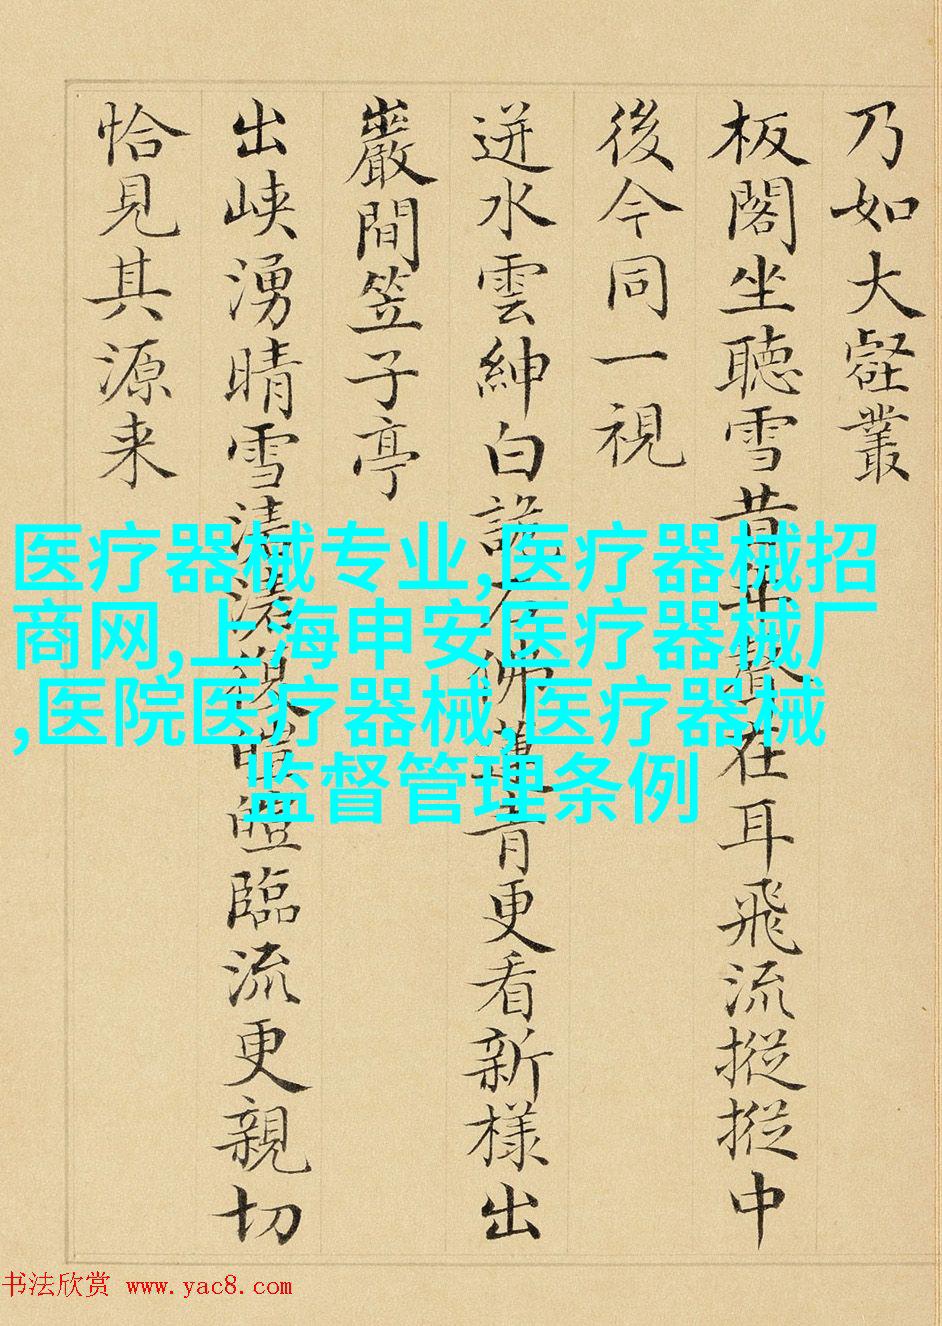 乃如大壑叢
板閣坐聽雪昔年聲在耳飛流摐摐中
後今同一視
迸水雲紳白詭石佛蓮青更看新様出
巖間笠子亭
出峡湧晴雪清臨流更親切
恰見其源来
医疗器械专业,医疗器械招
商网,上海申安医疗器械厂
,医院医疗器械,医疗器械
监督管理条例
书法欣赏 www.yac8.com